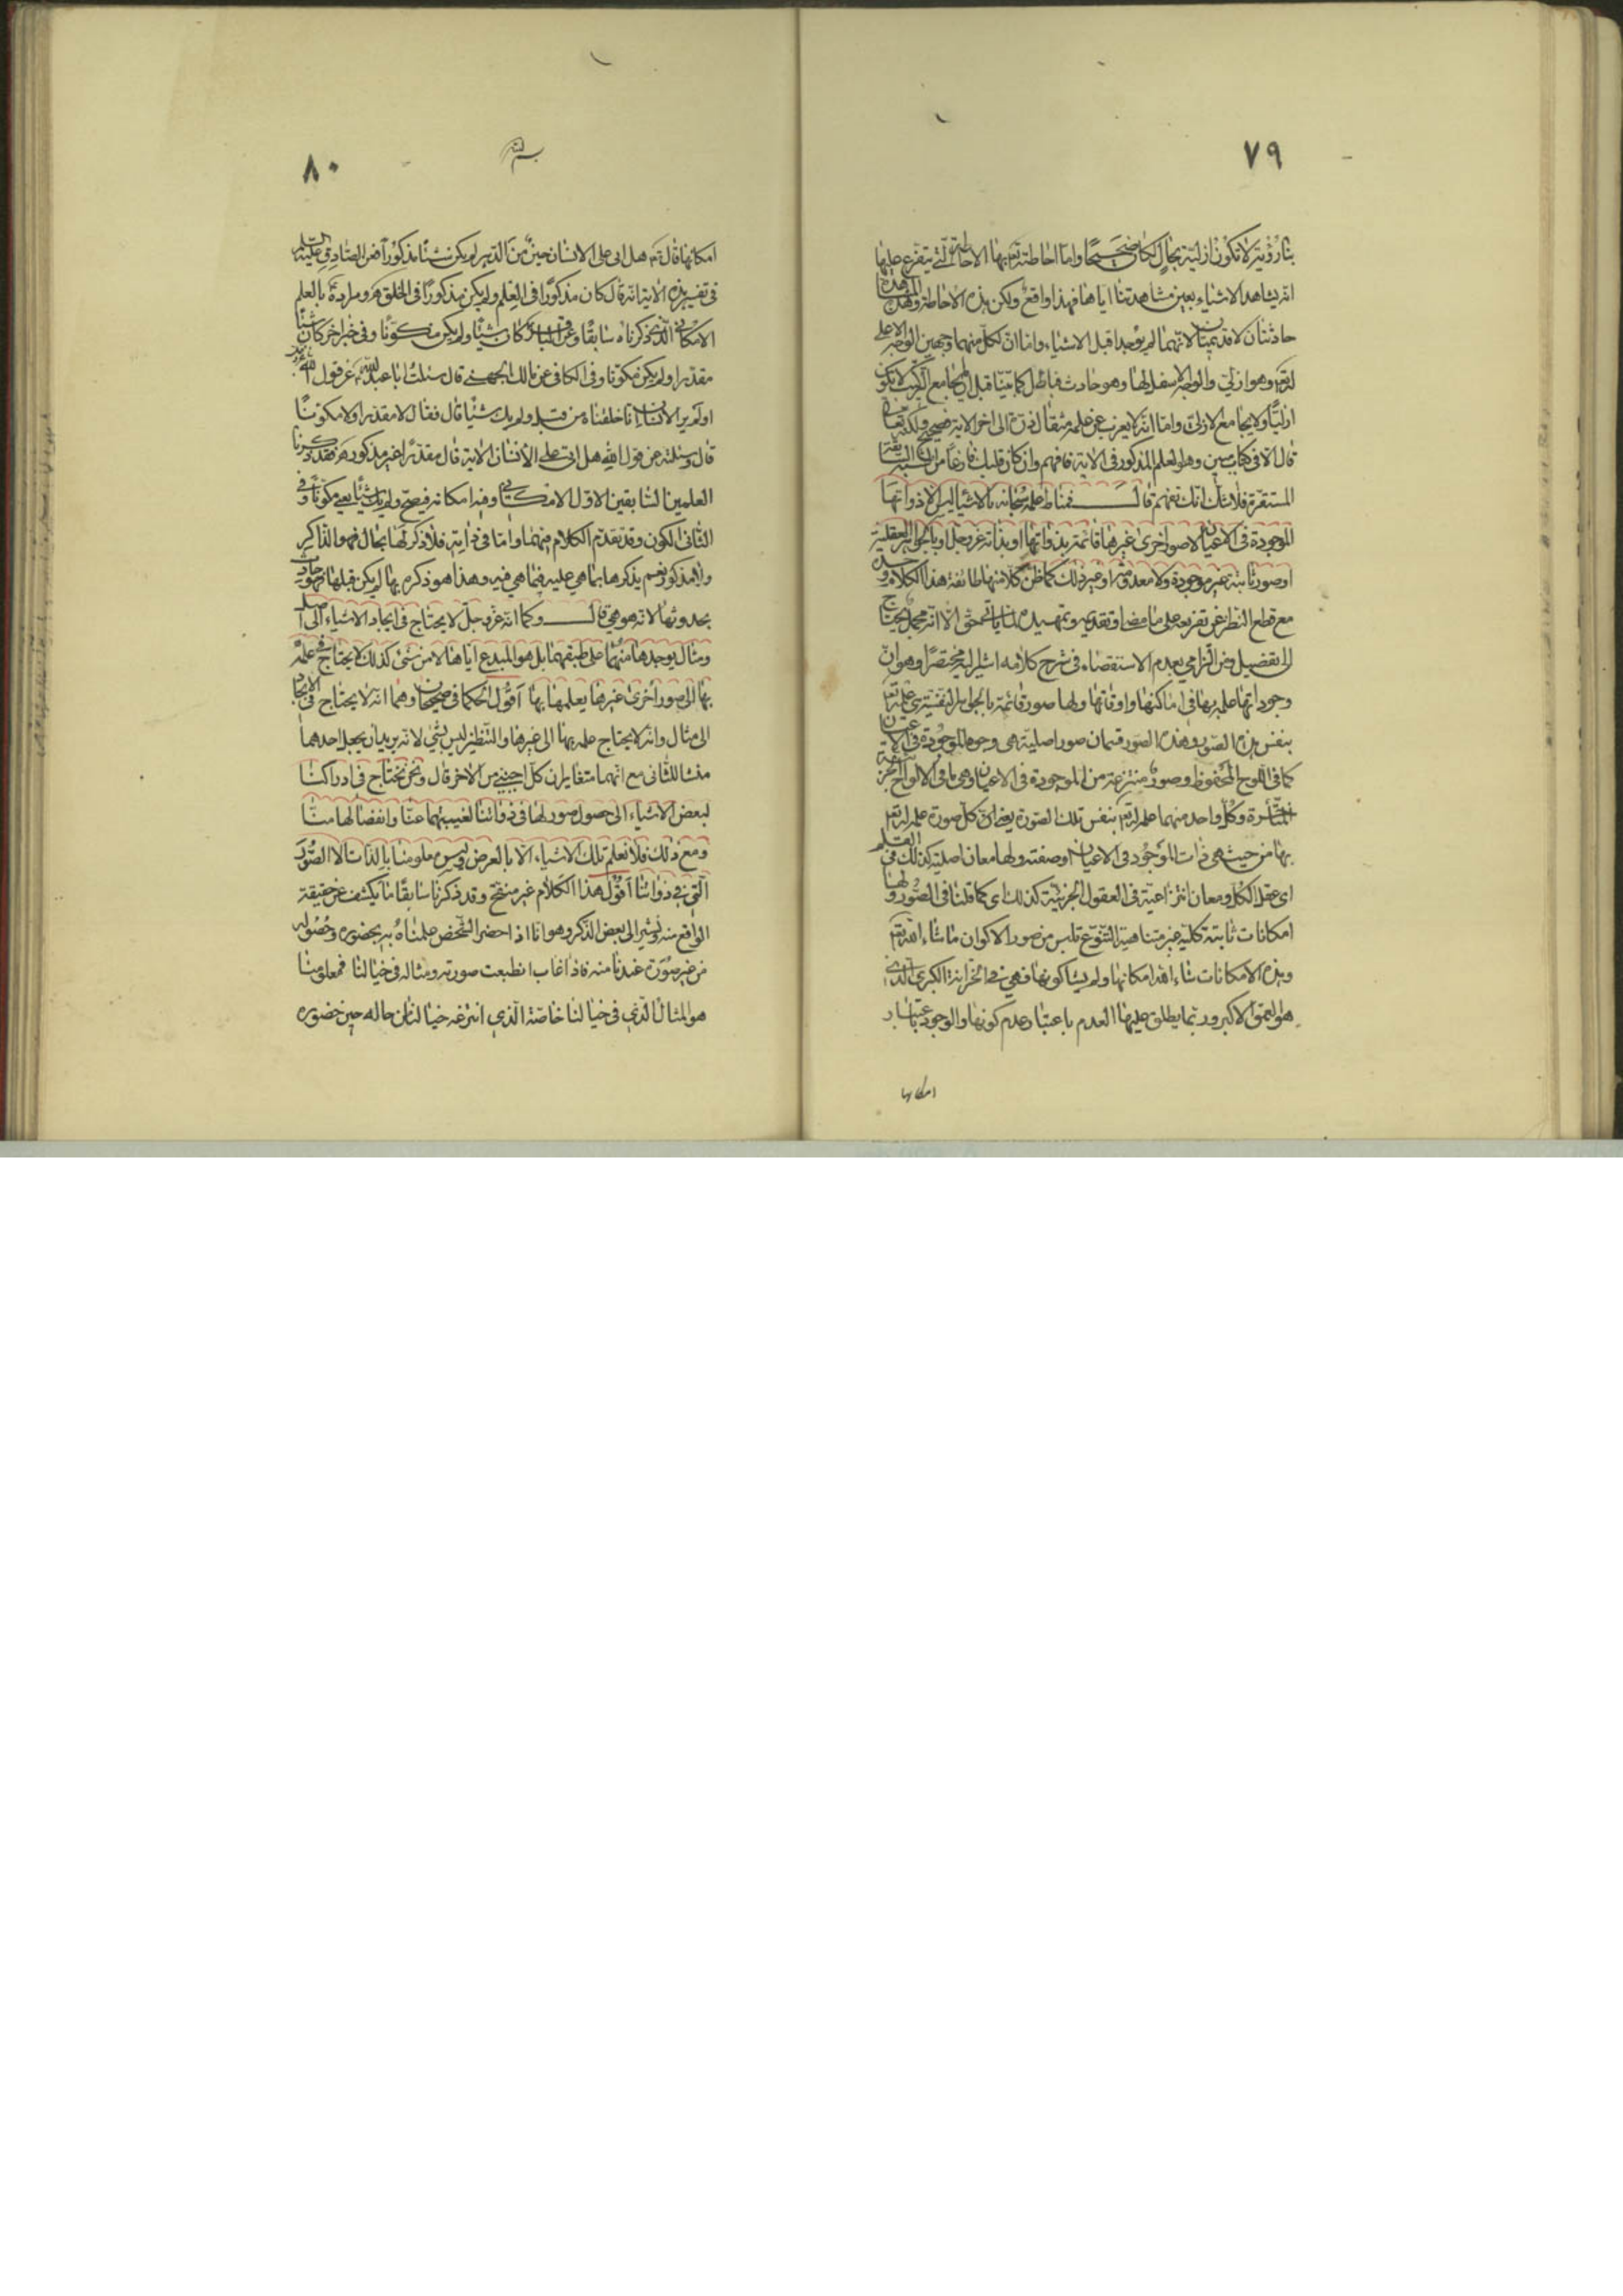 ٧٩
انه يشاهد الاشياء بعين مشاهدتنا اياها فهذا واقع ولكن هذه الاحاطة وهذه المشاهدة
حادثتان لا قديمتان لانهما لم يوجدا قبل الاشياء واما ان لكل منهما وجهين الوجه الاعلى
ازليا ولا يجامع الازلى واما انه لا يعزب عن علمه مثقال ذرة الى اخر الاية فصحيح ولكنه تعالى
قال الا فى كتاب مبين وهو العلم المذكور فى الاية فافهم وان كان قلبك فارغا من
المستقرة فلا شك انك تفهم قال فمناط علمه سبحانه بالاشياء ليس الا ذواتها
الموجودة فى الاعيان لا صور اخرى غيرها قائمة بذواتها او بذاته عز وجل او بالجواهر العقلية
او صور ثابتة غير موجودة ولا معدومة او غير ذلك كما ظن كلا منها طائفة هذا الكلام
مع قطع النظر عن تفريعه على ما مضى وتقديمه وتمهيده لما ياتى حق الا انه مجمل يحتاج
الى تفصيل ومن التزامى بعدم الاستقصاء فى شرح كلامه اشير اليه مختصرا وهو ان
وجوداتها علمه بها فى اماكنها واوقاتها ولها صور قائمة بالجواهر النفسية هى علمه تع
بنفس هذه الصور وهذه الصور قسمان صور اصلية هى وجوهها الموجودة فى الاعيان
كما فى اللوح المحفوظ وصور منتزعة من الموجودة فى الاعيان وهى ما فى الالواح الجزئية
وكل واحد منهما علم له تع بنفس تلك الصورة يعنى ان كل صورة علم له تع
بها من حيث هى ذات الموجود فى الاعيان او صفته ولها معان اصلية كذلك فى القلم
اى عقل الكل ومعان انتزاعية فى العقول الجزئية كذلك اى كما قلنا فى الصور ولها
امكانات ثابتة كلية غير متناهية التنوع تلبس من صور الاكوان ما شاء الله تع
وهذه الامكانات شاء الله امكانها ولم يشأ كونها فهى فى الخزانة الكبرى التى
هو العمق الاكبر وربما يطلق عليها العدم باعتبار عدم كونها والوجود باعتبار
امكانها
٨٠
امكانها قال تع هل اتى على الانسان حين من الدهر لم يكن شيئا مذكورا فعن الصادق عليه السلم
فى تفسير هذه الاية انه قال كان مذكورا فى العلم ولم يكن مذكورا فى الخلق ومراده بالعلم
الامكانى الذى ذكرناه سابقا وعن الباقر كان شيئا ولم يكن مكونا وفى خبر اخر كان شيئا
مقدرا ولم يكن مكونا وفى الكافى عن مالك الجهنى قال سئلت ابا عبد الله ع عن قول الله
اولم ير الانسان انا خلقناه من قبل ولم يك شيئا قال فقال لا مقدرا ولا مكونا
قال وسئلته عن قول الله هل اتى على الانسان الاية قال مقدرا غير مذكور فقد ذكرنا
العلمين السابقين الاول الامكانى وفيه امكانه فيصح ولم يك شيئا يعنى مكونا وفى
الثانى الكون وقد تقدم الكلام فيهما واما فى ذاته فلا ذكر لها بحال فهو الذاكر
ولا مذكور نعم يذكرها بما هى عليه فيما هى فيه وهذا هو ذكره بها لم يكن قبلها فهو حادث
بحدوثها لانه هو هى قال وكما انه عز وجل لا يحتاج فى ايجاد الاشياء الى اصل
ومثال يوجدها منهما على طبقهما بل هو المبدع اياها لا من شئ كذلك لا يحتاج فى علمه
بها الى صور اخرى غيرها يعلمها بها اقول الحكمان صحيحان وهما انه لا يحتاج فى الايجاد
الى مثال وانه لا يحتاج علمه بها الى غيرها والتنظير ليس بشئ لانه يريد ان يجعل احدهما
مثالا للثانى مع انهما متغايران كل اجنبى من الاخر قال ونحن نحتاج فى ادراكنا
لبعض الاشياء الى حصول صور لها فى ذواتنا لغيبتها عنا وانفصالها منا
ومع ذلك فلا نعلم تلك الاشياء الا بالعرض وليس معلومنا بالذات الا الصور
التى فى ذواتنا اقول هذا الكلام غير منقح وقد ذكرنا سابقا ما يكشف عن حقيقة
الواقع منه ونشير الى بعض الذكر وهو انا اذا حضر الشخص علمناه به بحضوره وحصوله
من غير صورة عندنا منه فاذا غاب انطبعت صورته ومثاله فى خيالنا فمعلومنا
هو المثال الذى فى خيالنا خاصة الذى انتزعه خيالنا من حاله حين حضوره